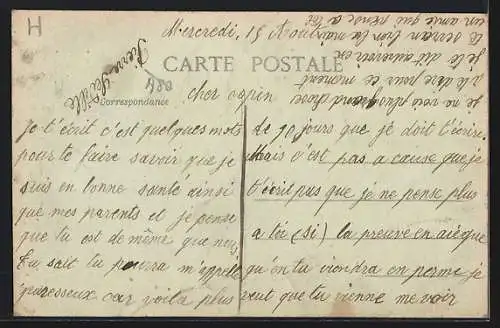 H
Mercredi, 15 Août
CARTE POSTALE
Correspondance
Cher copin
Je t'écrit c'est quelques mots
pour te faire savoir que je
suis en bonne santé ainsi
que mes parents et je pense
que tu est de même que nous
Tu sait tu pourra m'appelé
paresseux car voila plus
de 90 jours que je doit t'écrire
Mais c'est pas a cause que je
t'écrit pas que je ne pense plus
a toi (si) la preuve en aie que
qu'en tu viendra en perme je
veut que tu vienne me voir
je ne vois plus grand chose
a te dire pour ce moment
je te dit au revoir en
te serrain bien la main
un amie qui pense a toi
Pierre